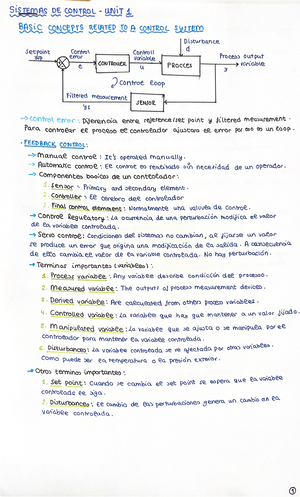 SISTEMAS DE CONTROL - UNIT 1
BASIC CONCEPTS RELATED TO A CONTROL SYSTEM
Disturbance
d
Setpoint
ysp
Control
error
e
CONTROLLER
Control
variable
u
PROCESS
Process output
y variable
Control loop
Filtered measurement
SENSOR
→ Control error: Diferencia entre reference/set point y filtered measurement.
Para controlar el proceso el controlador ajustara el error por eso es un loop.
· FEEDBACK CONTROL:
→ Manual control: It's operated manually.
→ Automatic control: El control es realizado sin necesidad de un operador.
→ Componentes basicos de un controlador:
1. Sensor → Primary and secondary element.
2. Controller: El cerebro del controlador
3. Final control element: Normalmente una valvula de control.
→ Control Regulatory: La ocurrencia de una perturbación modifica el valor
de la variable controlada.
→ Servo control: Condiciones del sistemas no cambian, al fijarse un valor
se produce un error que origina una modificación de la salida. A consecuencia
de ello cambia el valor de la variable controlada. No hay perturbación.
→ Terminos importantes (variables):
1. Process variable: Any variable describe condición del proceso.
2. Measured variable: The output of process measurement devices.
3. Derived variable: Are calculated from others process variables.
4. Controlled variable: La variable que hay que mantener a un valor fijado.
5. Manipulated variable: La variable que se ajusta o se manipula por el
controlador para mantener la variable controlada.
6. Disturbances: La variable controlada se ve afectada por otras variables.
Como puede ser la temperatura o la presión exterior.
→ Otros terminos importantes:
1. Set point: Cuando se cambia el set point se espera que la variable
controlada le siga.
2. Disturbances: El cambio de las perturbaciones genera un cambio en la
variable controlada.
1